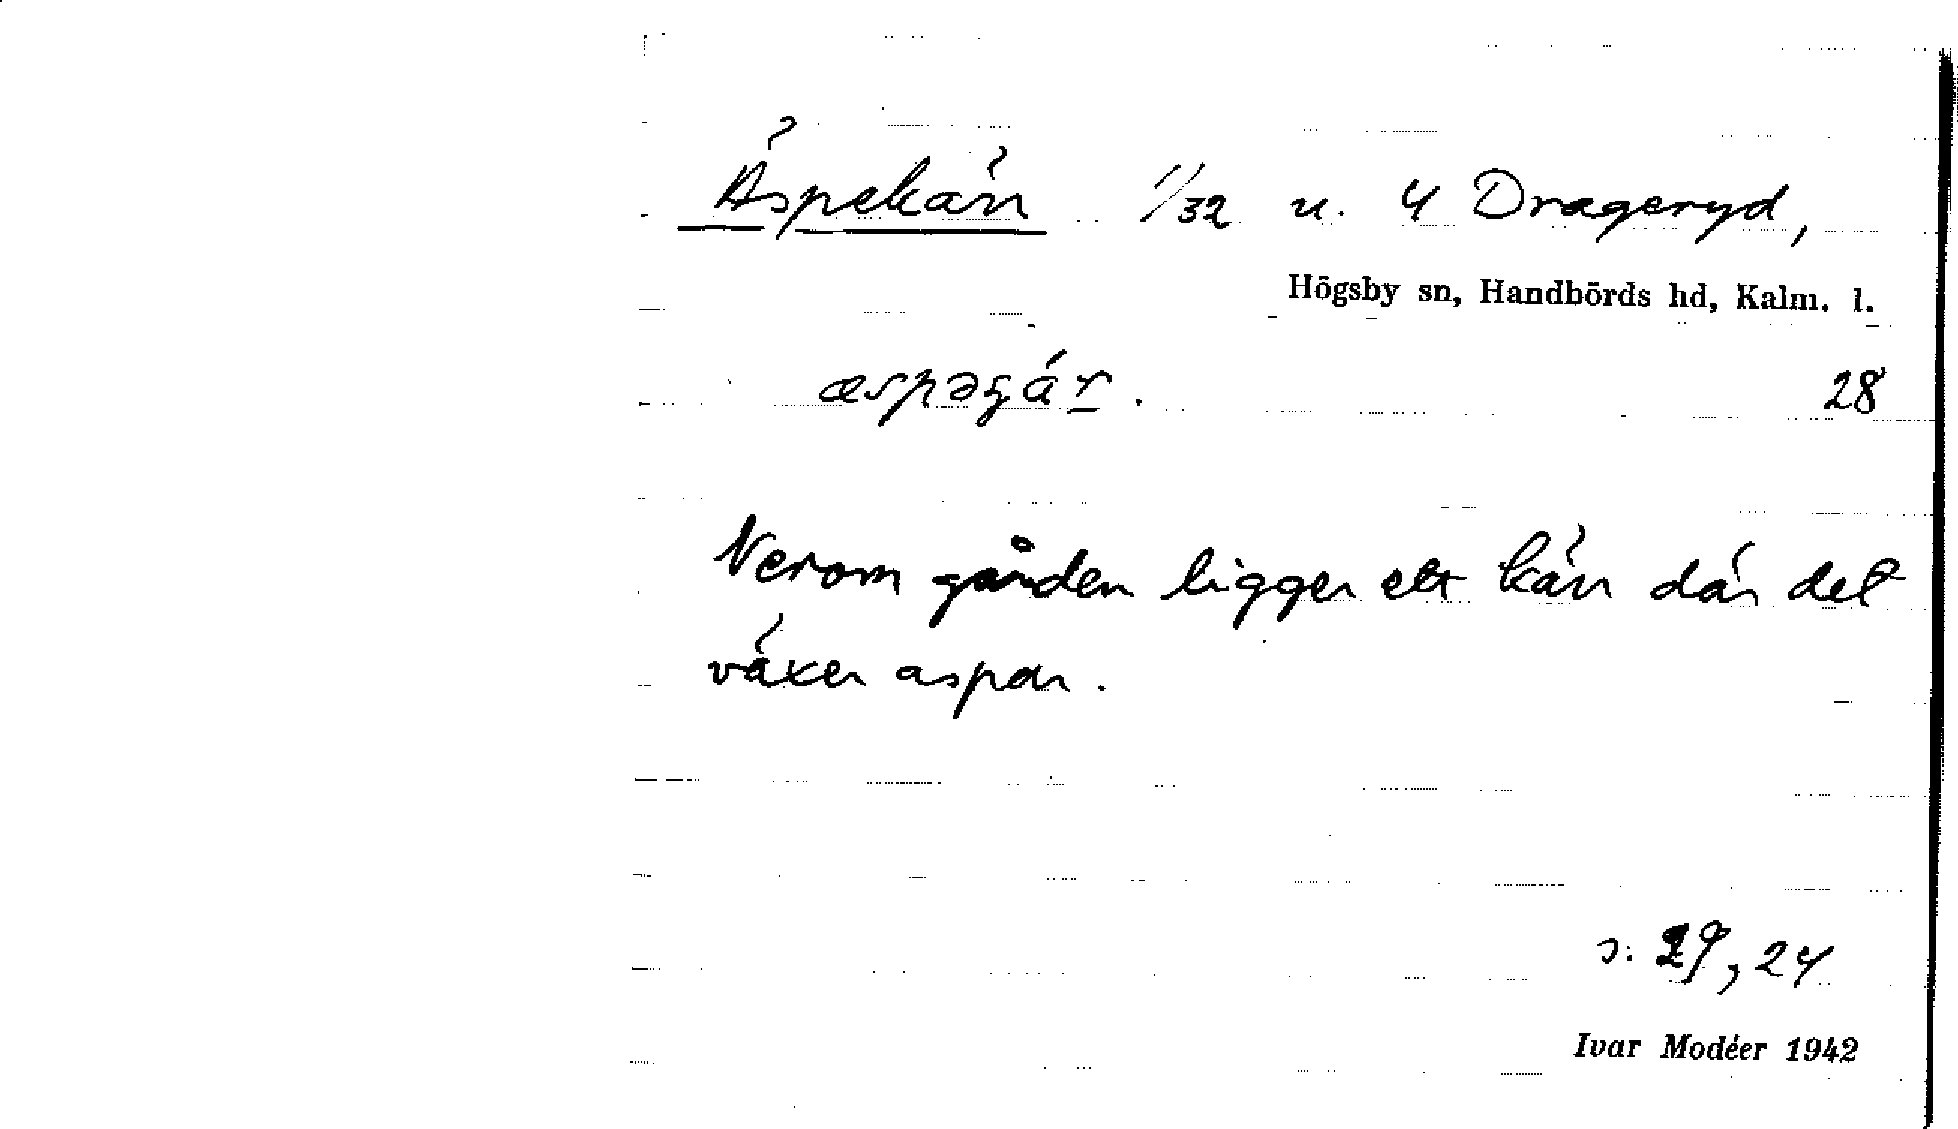 Äspekärr 1/32 u. 4 Drageryd,
Högsby sn, Handbörds hd, Kalm. l.
28
Nerom gården ligger ett kärr där det
växer aspar.
s. 29, 24
Ivar Modéer 1942